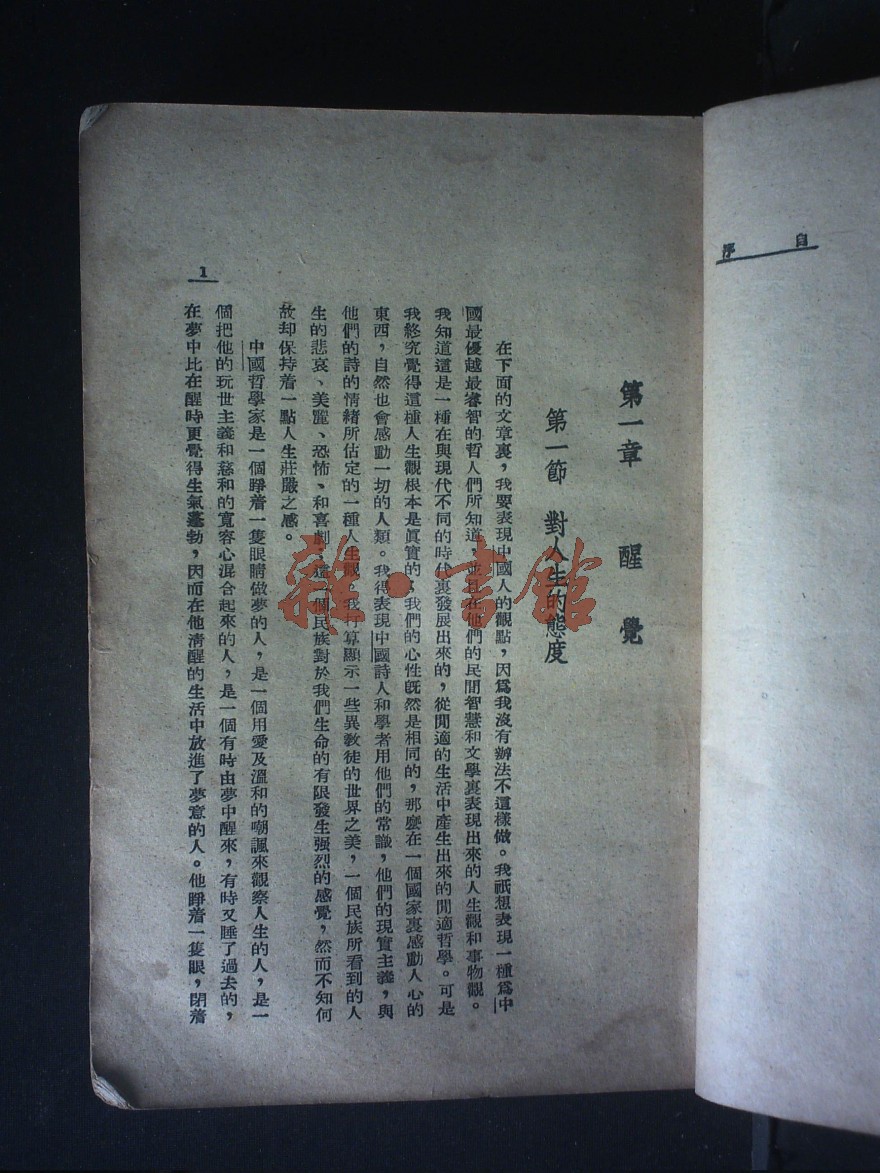 自序
第一章 醒覺
第一節 對人生的態度
在下面的文章裏，我要表現中國人的觀點，因爲我沒有辦法不這樣做。我祇想表現一種爲中
國最優越最睿智的哲人們所知道，並且在他們的民間智慧和文學裏表現出來的人生觀和事物觀。
我知道這是一種在與現代不同的時代裏發展出來的，從閒適的生活中產生出來的閒適哲學。可是
我終究覺得這種人生觀根本是眞實的；我們的心性旣然是相同的，那麼在一個國家裏感動人心的
東西，自然也會感動一切的人類。我得表現中國詩人和學者用他們的常識，他們的現實主義，與
他們的詩的情緒所估定的一種人生觀。我打算顯示一些異敎徒的世界之美，一個民族所看到的人
生的悲哀、美麗、恐怖、和喜劇，這一個民族對於我們生命的有限發生强烈的感覺，然而不知何
故却保持着一點人生莊嚴之感。
中國哲學家是一個睜着一隻眼睛做夢的人，是一個用愛及溫和的嘲諷來觀察人生的人，是一
個把他的玩世主義和慈和的寬容心混合起來的人，是一個有時由夢中醒來，有時又睡了過去的，
在夢中比在醒時更覺得生氣蓬勃，因而在他淸醒的生活中放進了夢意的人。他睜着一隻眼，閉着
1
雜·書館